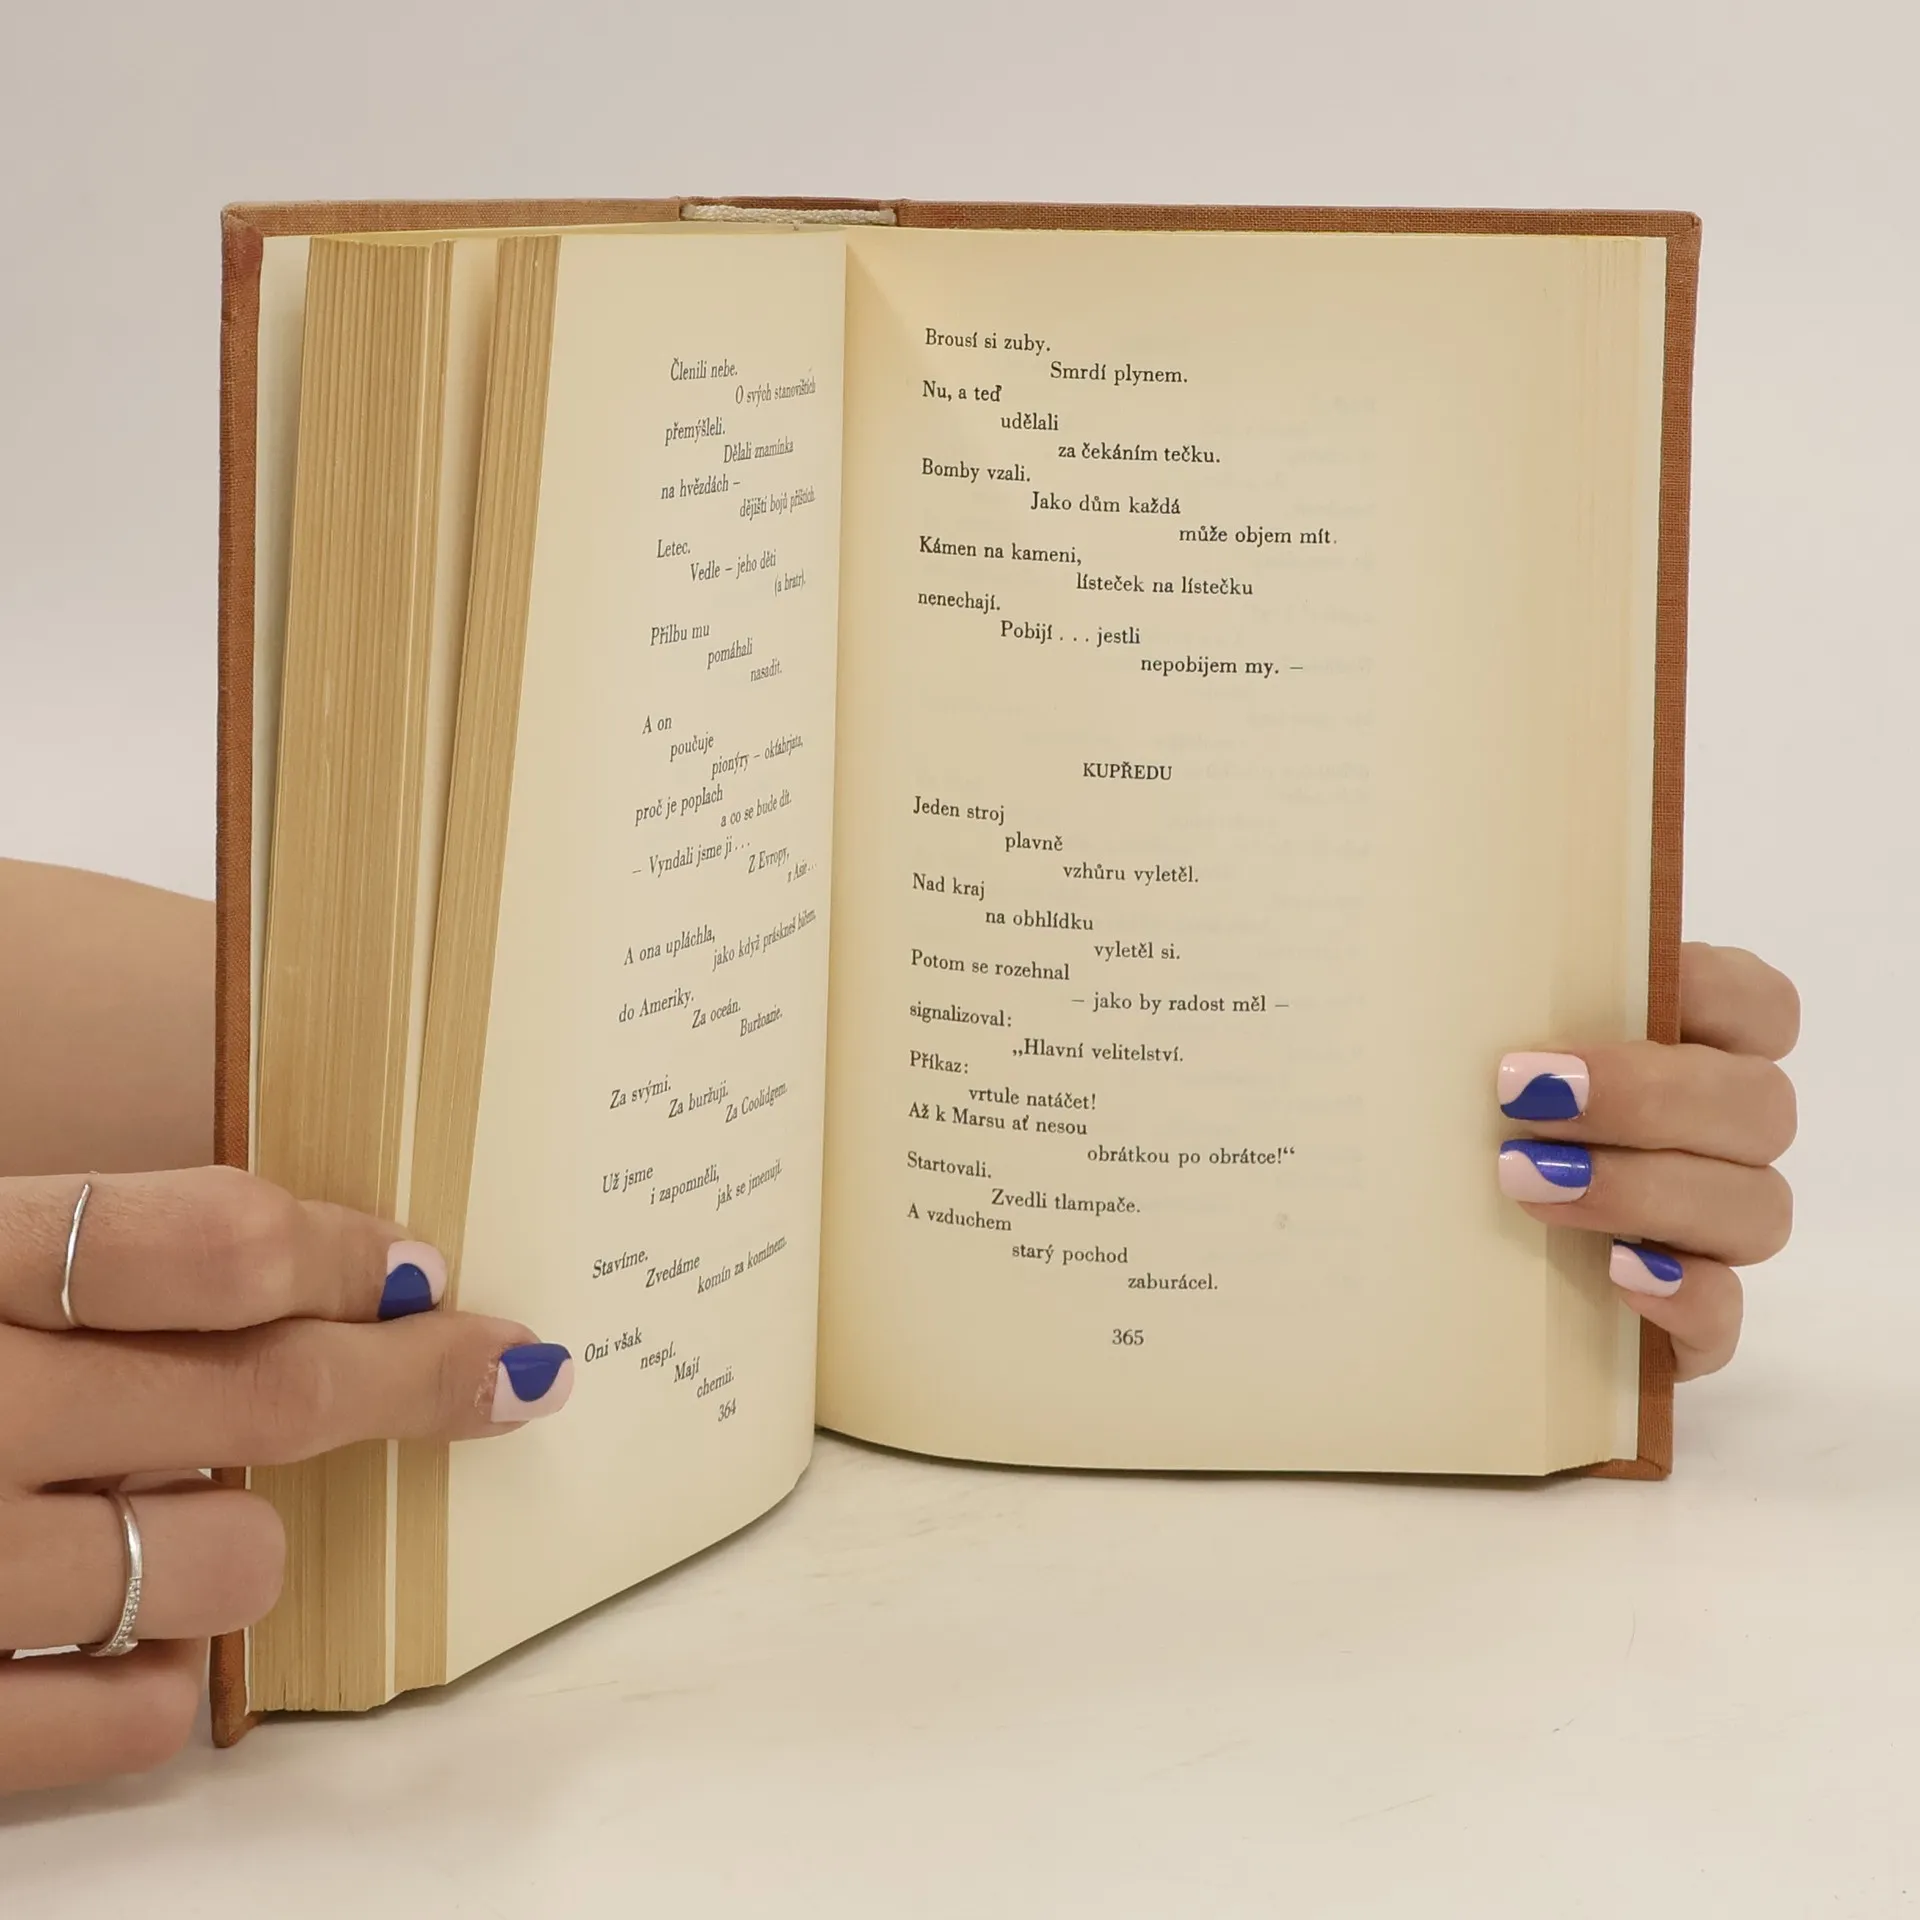 Členili nebe.
O svých stanovištích
přemýšleli.
Dělali znamínka
na hvězdách –
dějišti bojů příštích.
Letec.
Vedle – jeho děti
(a bratr).
Přilbu mu
pomáhali
nasadit.
A on
poučuje
pionýry – okťabrjata,
proč je poplach
a co se bude dít.
– Vyndali jsme ji . . .
Z Evropy,
z Asie . . .
A ona upláchla,
jako když práskneš bičem,
do Ameriky.
Za oceán.
Buržoasie.
Za svými.
Za buržuji.
Za Coolidgem.
Už jsme
i zapomněli,
jak se jmenují.
Stavíme.
Zvedáme
komín za komínem.
Oni však
nespí.
Mají
chemii.
364
Brousí si zuby.
Smrdí plynem.
Nu, a teď
udělali
za čekáním tečku.
Bomby vzali.
Jako dům každá
může objem mít.
Kámen na kameni,
lísteček na lístečku
nenechají.
Pobijí . . . jestli
nepobijem my. –
KUPŘEDU
Jeden stroj
plavně
vzhůru vyletěl.
Nad kraj
na obhlídku
vyletěl si.
Potom se rozehnal
– jako by radost měl –
signalizoval:
„Hlavní velitelství.
Příkaz:
vrtule natáčet!
Až k Marsu ať nesou
obrátkou po obrátce!“
Startovali.
Zvedli tlampače.
A vzduchem
starý pochod
zaburácel.
365